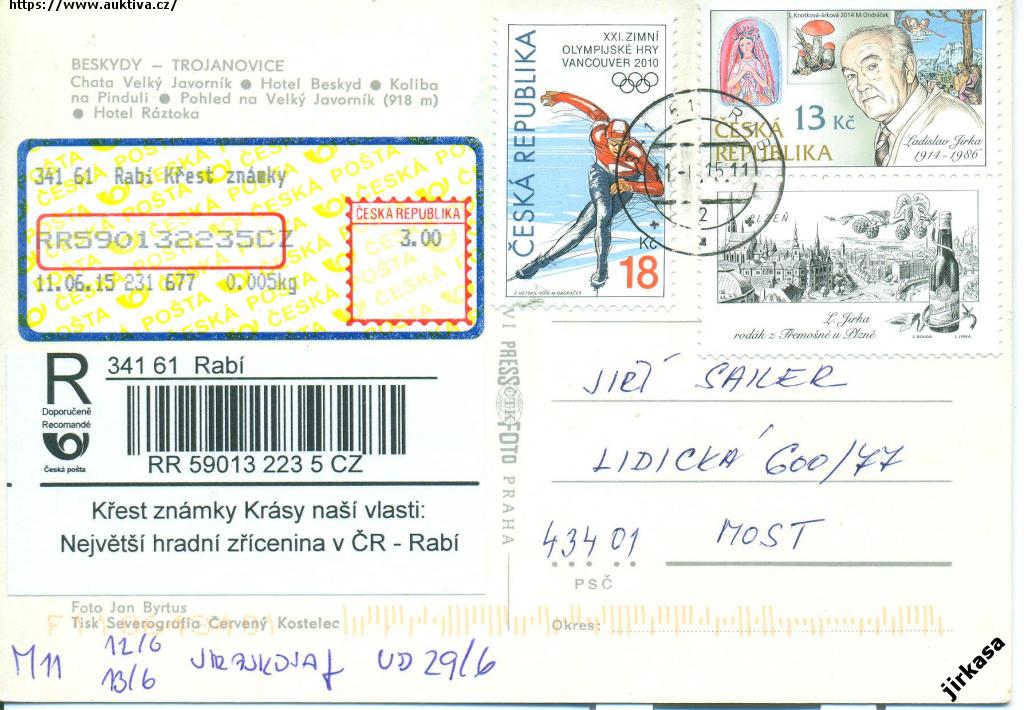 https://www.auktiva.cz/
BESKYDY — TROJANOVICE
Chata Velký Javorník ● Hotel Beskyd ● Koliba
na Pinduli ● Pohled na Velký Javorník (918 m)
● Hotel Ráztoka
341 61 Rabí Křest známky
RR590132235CZ
11.06.15 231 677 0.005kg
ČESKÁ REPUBLIKA
3.00
ČESKÁ POŠTA
R
Doporučeně
Recomandé
Česká pošta
341 61 Rabí
RR 59013 223 5 CZ
Křest známky Krásy naší vlasti:
Největší hradní zřícenina v ČR - Rabí
Foto Jan Byrtus
Tisk Severografia Červený Kostelec
M11
12/6
13/6
UD 29/6
ČESKÁ REPUBLIKA
XXI. ZIMNÍ
OLYMPIJSKÉ HRY
VANCOUVER 2010
Kč
18
L.Knotková-Jírková 2014 M.Ondráček
13 Kč
ČESKÁ
REPUBLIKA
Ladislav Jirka
1914-1986
PLZEŇ
L. Jirka
rodák z Třemošné u Plzně
L.JIRKA
PRESSFOTO PRAHA
JIŘÍ SAILER
LIDICKÁ 600/77
43401 MOST
PSČ
Okres:
jirkasa